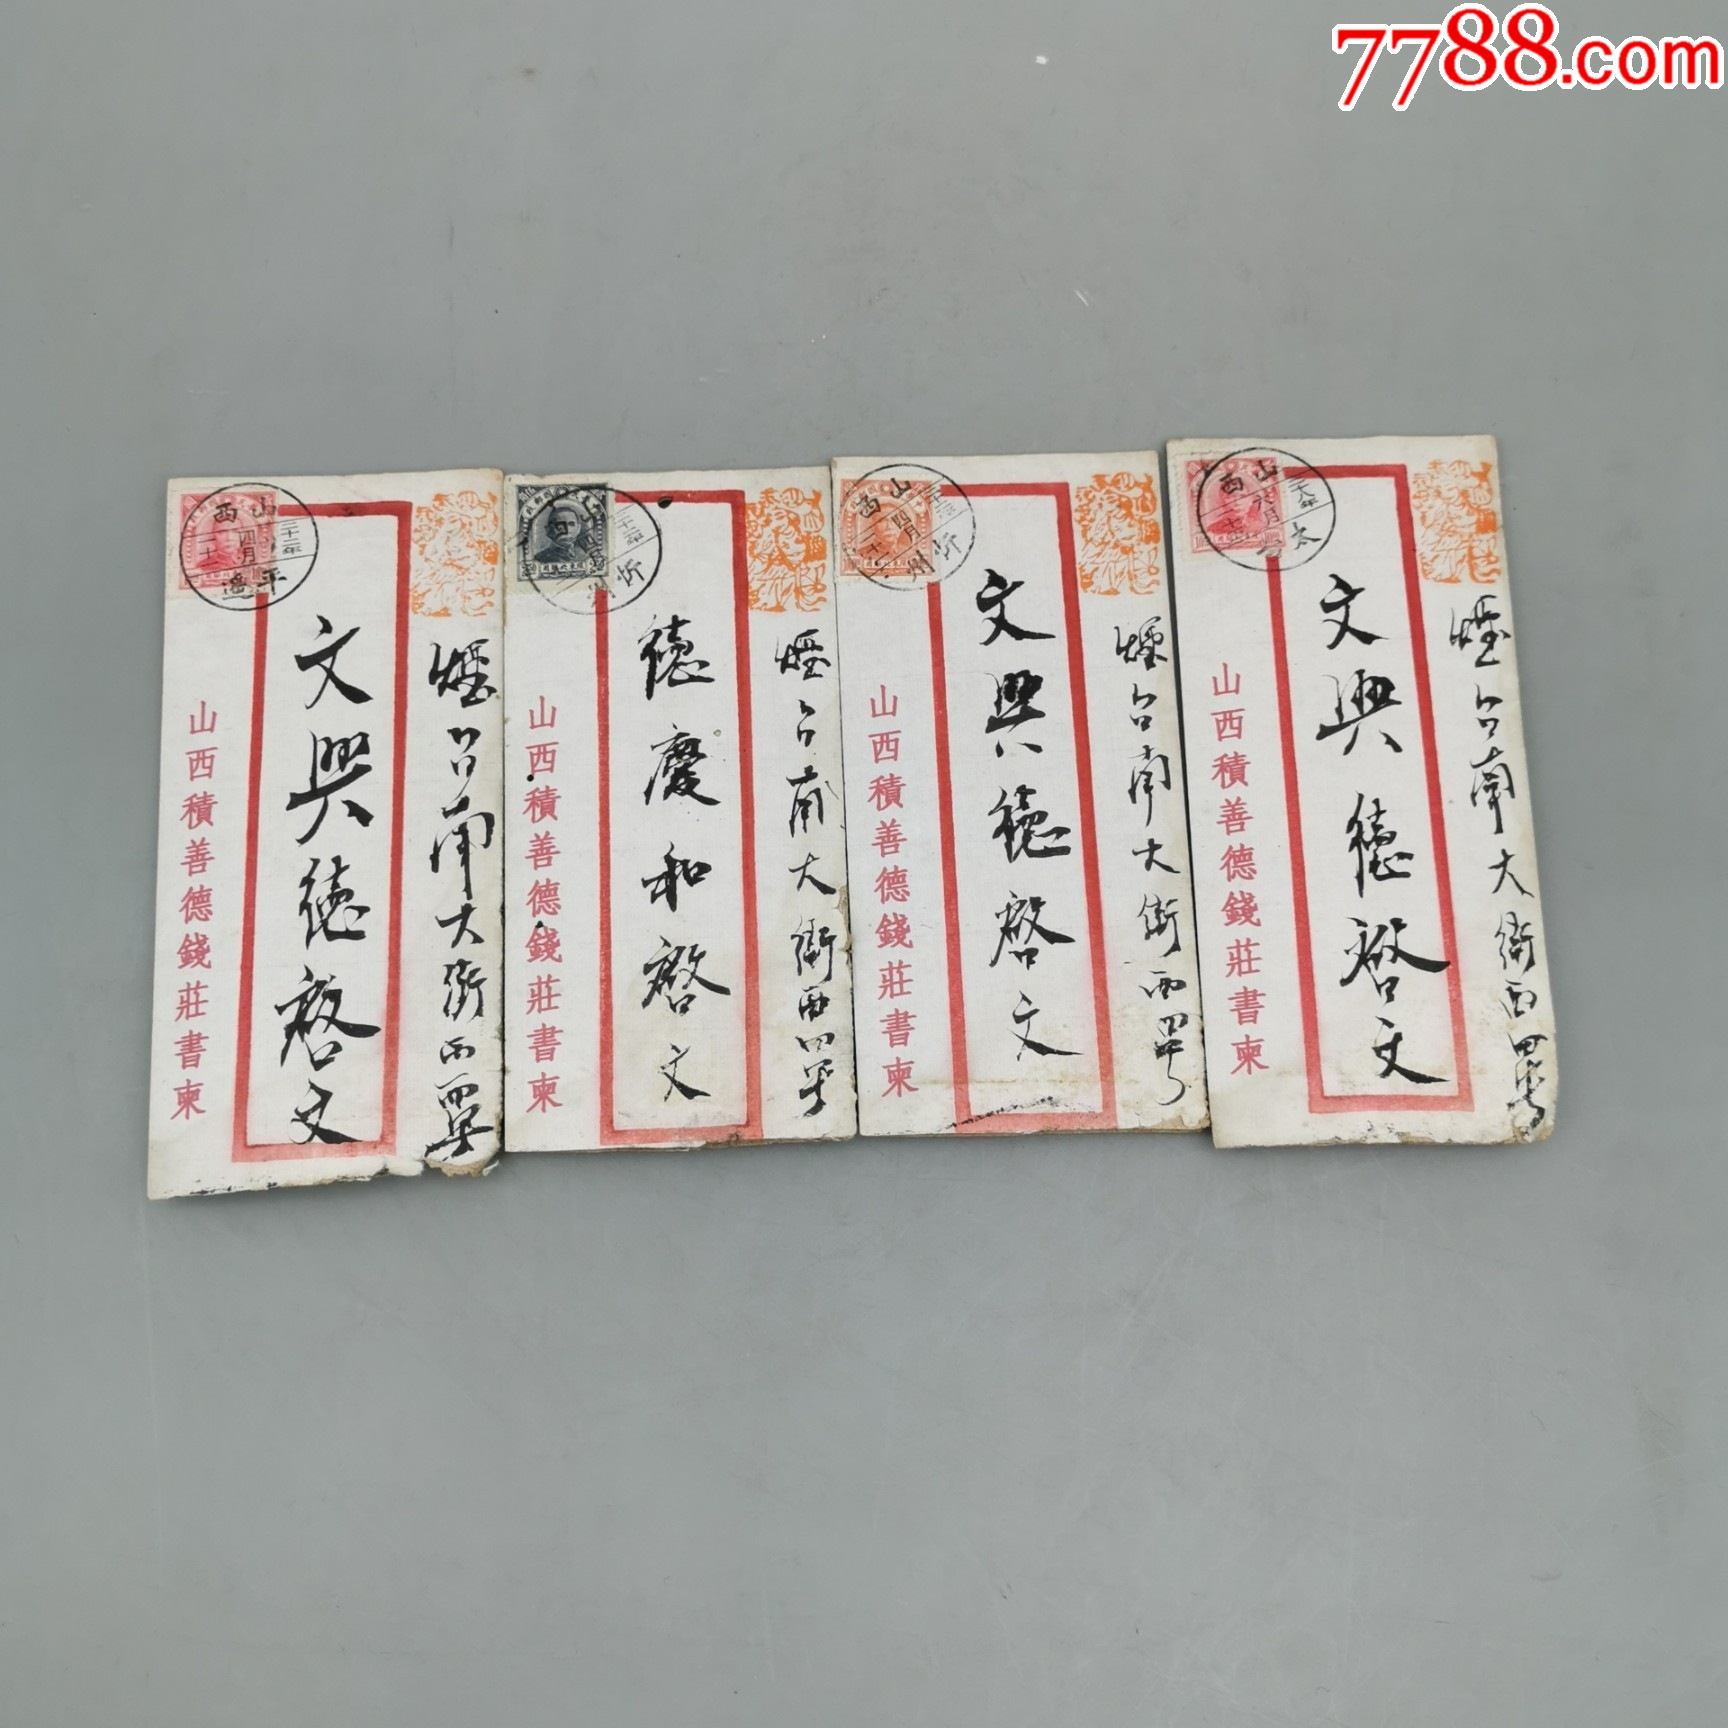 7788.com
煙台南大街西四号
文興德啓文
山西積善德錢莊書柬
山西
三十二年
四月
平遙
煙台南大街西四号
德慶和啓文
山西積善德錢莊書柬
山西
忻州
煙台南大街西四号
文興德啓文
山西積善德錢莊書柬
山西
四月
忻州
煙台南大街西四号
文興德啓文
山西積善德錢莊書柬
山西
二十八年
六月
太谷